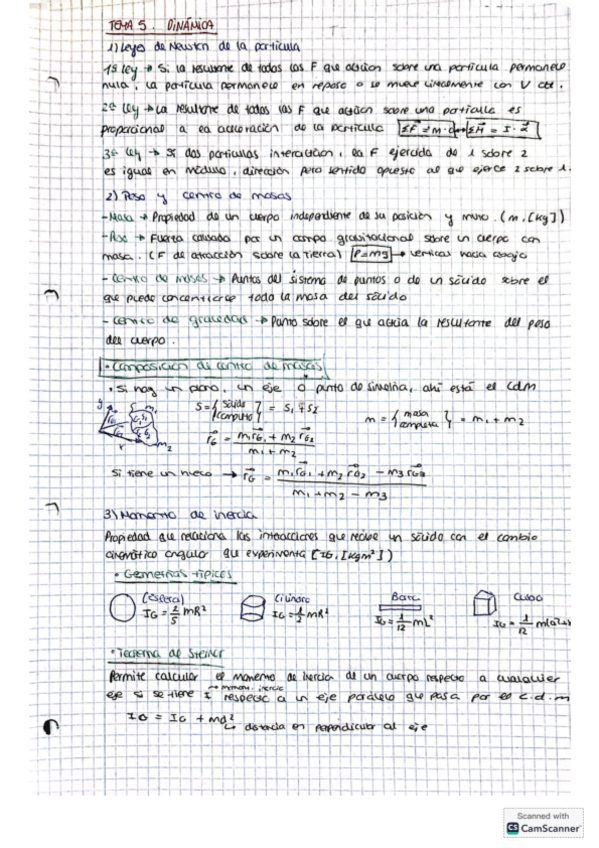 TEMA 5. DINÁMICA
1) Leyes de Newton de la partícula
1ª ley → Si la resultante de todas las F que actúan sobre una partícula permanece
nula, la partícula permanece en reposo o se mueve linealmente con V cte.
2ª ley → La resultante de todas las F que actúan sobre una partícula es
proporcional a la aceleración de la partícula ΣF = m·a ΣM = I·α
3ª ley → Si dos partículas interactúan, la F ejercida de 1 sobre 2
es igual en módulo, dirección pero sentido opuesto al que ejerce 2 sobre 1.
2) Peso y centro de masas
- Masa → Propiedad de un cuerpo independiente de su posición y (m, [kg])
- Peso → Fuerza causada por un campo gravitacional sobre un cuerpo con
masa. (F de atracción sobre la Tierra) P=mg → vertical hacia abajo
- Centro de masas → Puntos del sistema de puntos o de un sólido sobre el
que puede concentrarse toda la masa del sólido
- Centro de gravedad → Punto sobre el que actúa la resultante del peso
del cuerpo.
• Composición de centro de masas
• Si hay un plano, un eje o punto de simetría, ahí está el CdM
S = { sólido completo } = S1 + S2
m = { masa completa } = m1 + m2
rG = m1rG1 + m2rG2 / m1 + m2
Si tiene un hueco → rG = m1rG1 + m2rG2 − m3rG3 / m1 + m2 − m3
3) Momento de inercia
Propiedad que relaciona las interacciones que recibe un sólido con el cambio
cinemático angular que experimenta [IG, [kgm²])
• Geometrías típicas
(esfera) Cilindro Barra Cubo
IG = 2/5 mR² IG = 1/2 mR² IG = 1/12 mL² IG = 1/12 m
• Teorema de Steiner
Permite calcular el momento de inercia de un cuerpo respecto a cualquier
eje si se tiene I → momento inercia respecto a un eje paralelo que pasa por el c.d.m
IO = IG + md²
↳ distancia en perpendicular al eje
Scanned with
CS CamScanner